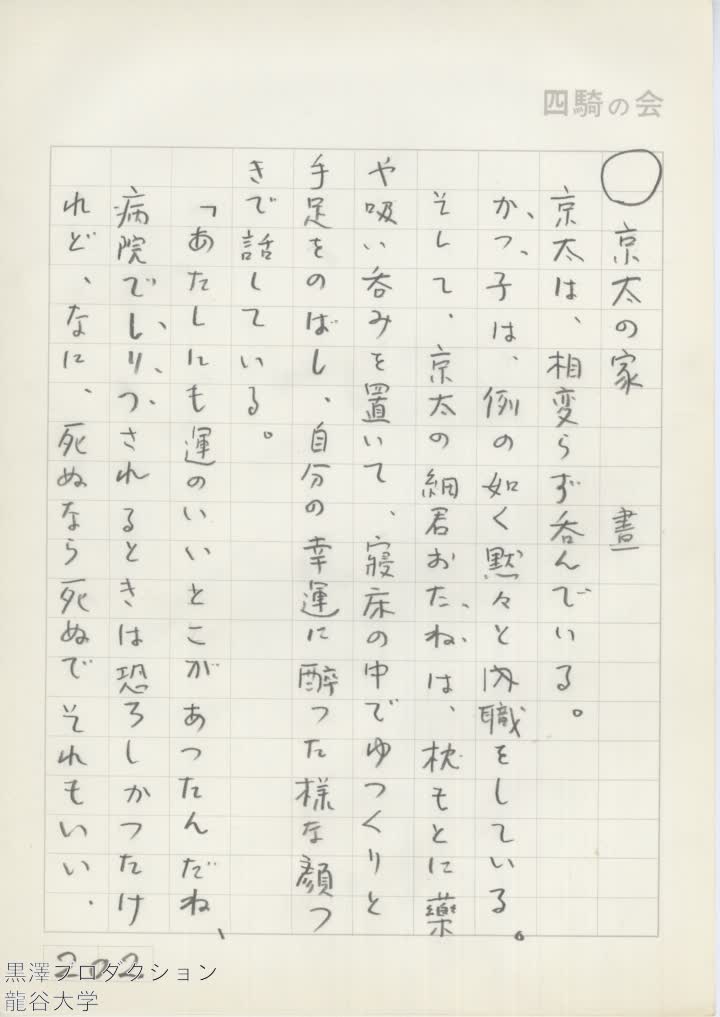 四騎の会
○ 京太の家　　晝
京太は、相変らず呑んでいる。
かつ子は、例の如く黙々と内職をしている。
そして、京太の細君おたねは、枕もとに藥
や吸い呑みを置いて、寝床の中でゆつくりと
手足をのばし、自分の幸運に酔った様な顔つ
きで話している。
「あたしにも運のいいとこがあつたんだね、
病院でしりつされるときは恐ろしかつたけ
れど、なに、死ぬなら死ぬでそれもいい、
202
黒澤プロダクション
龍谷大学